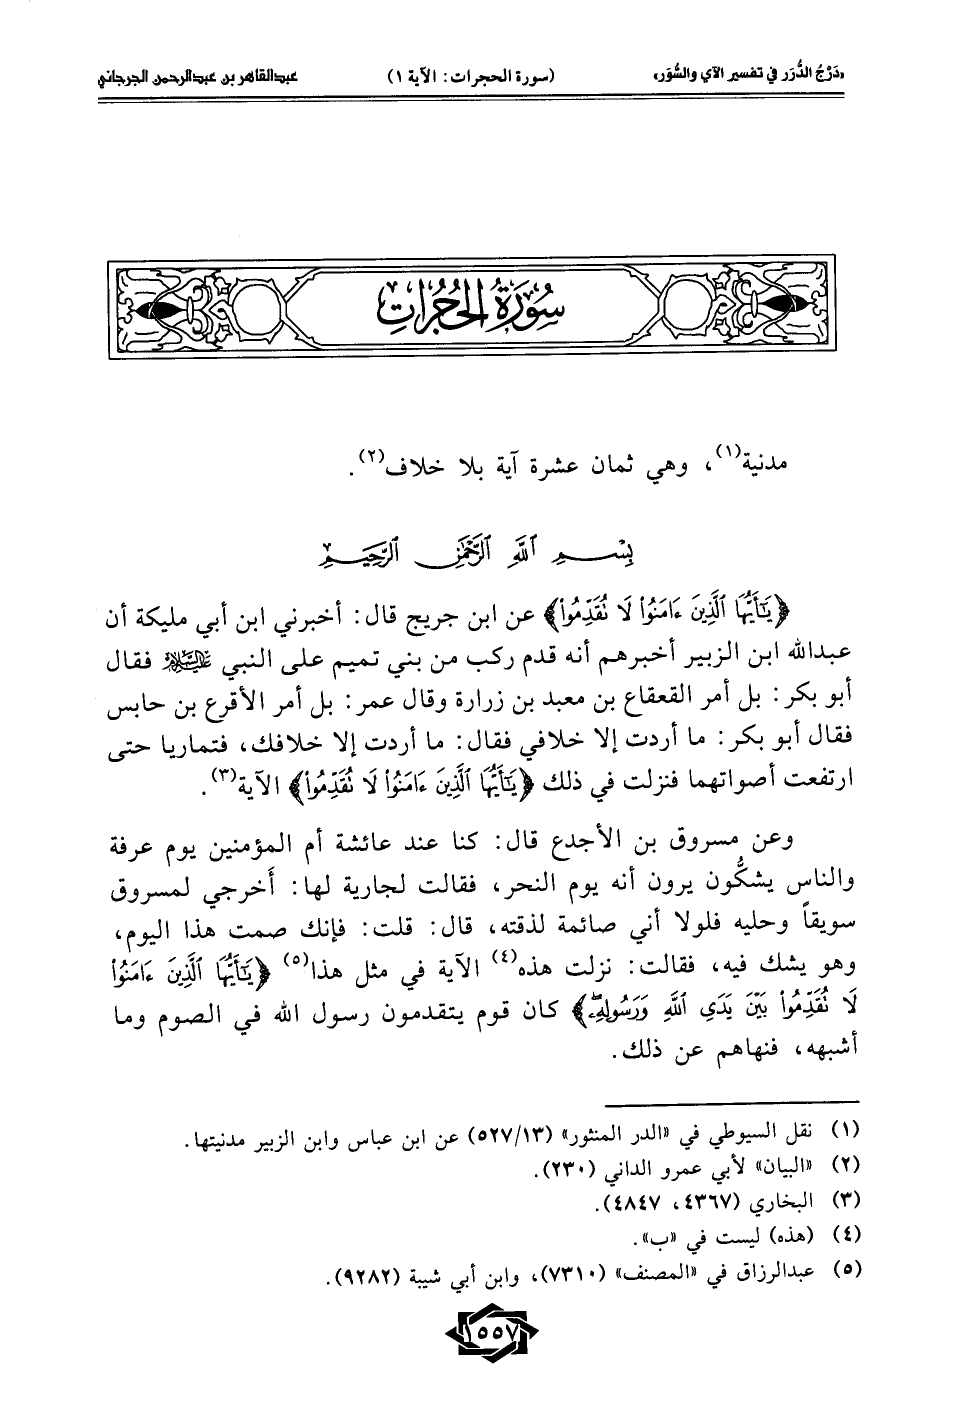 «دَرْجُ الدُّرَر في تفسير الآي والسُّوَر» (سورة الحجرات: الآية ١) عبدالقاهر بن عبدالرحمن الجرجاني
سُورَةُ الحُجُرَاتِ
مدنية(١)، وهي ثمان عشرة آية بلا خلاف(٢).
بِسْمِ اللَّهِ الرَّحْمَٰنِ الرَّحِيمِ
﴿يَٰٓأَيُّهَا ٱلَّذِينَ ءَامَنُوا۟ لَا تُقَدِّمُوا۟﴾ عن ابن جريج قال: أخبرني ابن أبي مليكة أن
عبدالله ابن الزبير أخبرهم أنه قدم ركب من بني تميم على النبي عليه السلام فقال
أبو بكر: بل أمر القعقاع بن معبد بن زرارة وقال عمر: بل أمر الأقرع بن حابس
فقال أبو بكر: ما أردت إلا خلافي فقال: ما أردت إلا خلافك، فتماريا حتى
ارتفعت أصواتهما فنزلت في ذلك ﴿يَٰٓأَيُّهَا ٱلَّذِينَ ءَامَنُوا۟ لَا تُقَدِّمُوا۟﴾ الآية(٣).
وعن مسروق بن الأجدع قال: كنا عند عائشة أم المؤمنين يوم عرفة
والناس يشكُّون يرون أنه يوم النحر، فقالت لجارية لها: أَخرجي لمسروق
سويقاً وحليه فلولا أني صائمة لذقته، قال: قلت: فإنك صمت هذا اليوم،
وهو يشك فيه، فقالت: نزلت هذه(٤) الآية في مثل هذا(٥) ﴿يَٰٓأَيُّهَا ٱلَّذِينَ ءَامَنُوا۟
لَا تُقَدِّمُوا۟ بَيْنَ يَدَىِ ٱللَّهِ وَرَسُولِهِۦ﴾ كان قوم يتقدمون رسول الله في الصوم وما
أشبهه، فنهاهم عن ذلك.
(١) نقل السيوطي في «الدر المنثور» (٥٢٧/١٣) عن ابن عباس وابن الزبير مدنيتها.
(٢) «البيان» لأبي عمرو الداني (٢٣٠).
(٣) البخاري (٤٣٦٧، ٤٨٤٧).
(٤) (هذه) ليست في «ب».
(٥) عبدالرزاق في «المصنف» (٧٣١٠)، وابن أبي شيبة (٩٢٨٢).
١٥٥٧